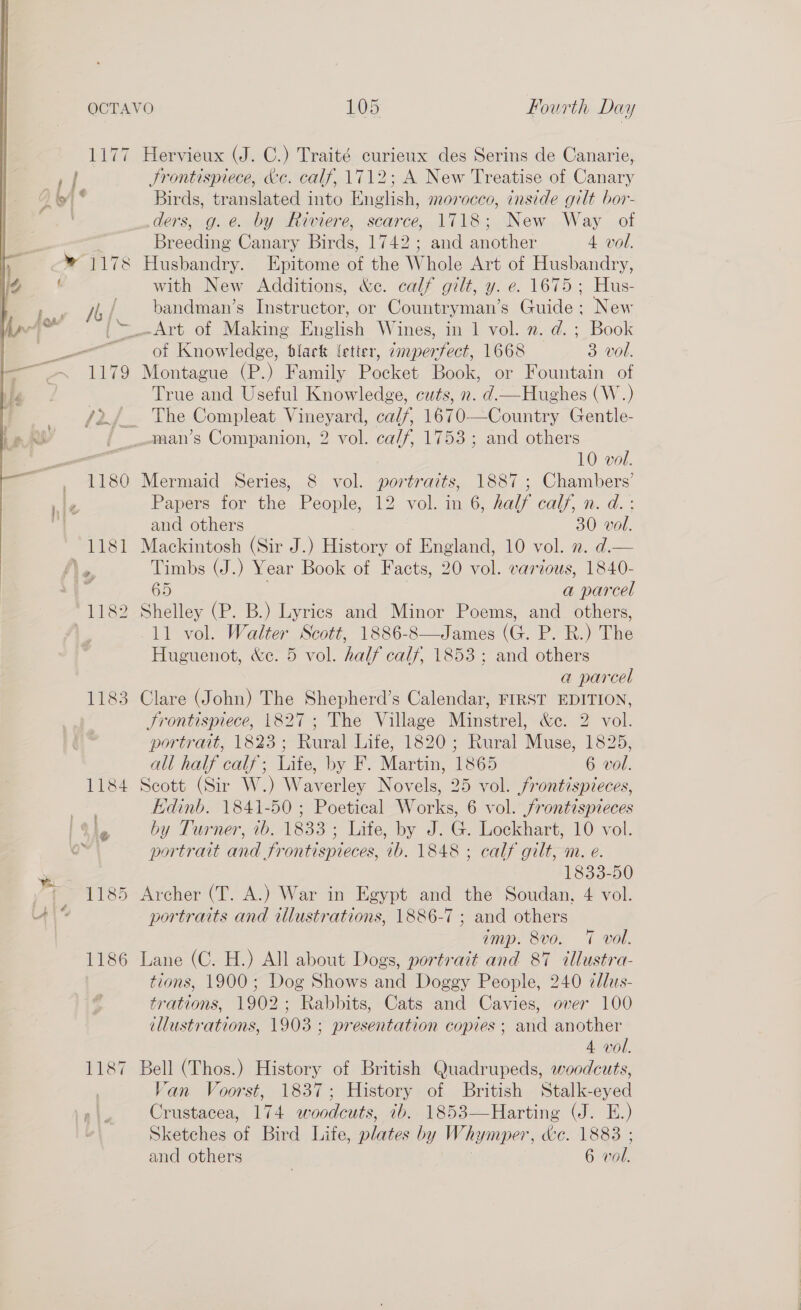 OCTAVO 105 Fourth Day
1177 Hervieux (J. C.) Traité curieux des Serins de Canarie,
frontispiece, &c. calf, 1712; A New Treatise of Canary
Birds, translated into English, morocco, inside gilt bor-
ders, g. e. by Riviere, scarce, 1718; New Way of
Breeding Canary Birds, 1742; and another 4 vol.
1178 Husbandry. Epitome of the Whole Art of Husbandry,
with New Additions, &c. calf gilt, y. e. 1675; Hus-
bandman's Instructor, or Countryman's Guide; New
Art of Making English Wines, in 1 vol. n. d.; Book
of Knowledge, black letter, imperfect, 1668 3 vol.
1179 Montague (P.) Family Pocket Book, or Fountain of
True and Useful Knowledge, cuts, n. d.—Hughes (W.)
The Compleat Vineyard, calf, 1670—Country Gentle-
man's Companion, 2 vol. calf, 1753; and others
10 vol.
1180 Mermaid Series, 8 vol. portraits, 1887; Chambers'
Papers for the People, 12 vol. in 6, half calf, n. d.;
and others 30 vol.
1181 Mackintosh (Sir J.) History of England, 10 vol. n. d.—
Timbs (J.) Year Book of Facts, 20 vol. various, 1840-
65 a parcel
1182 Shelley (P. B.) Lyrics and Minor Poems, and others,
11 vol. Walter Scott, 1886-8—James (G. P. R.) The
Huguenot, &c. 5 vol. half calf, 1853; and others
a parcel
1183 Clare (John) The Shepherd's Calendar, FIRST EDITION,
frontispiece, 1827; The Village Minstrel, &c. 2 vol.
portrait, 1823; Rural Life, 1820; Rural Muse, 1825,
all half calf; Life, by F. Martin, 1865 6 vol.
1184 Scott (Sir W.) Waverley Novels, 25 vol. frontispieces,
Edinb. 1841-50; Poetical Works, 6 vol. frontispieces
by Turner, ib. 1833; Life, by J. G. Lockhart, 10 vol.
portrait and frontispieces, ib. 1848; calf gilt, m. e.
1833-50
1185 Archer (T. A.) War in Egypt and the Soudan, 4 vol.
portraits and illustrations, 1886-7; and others
imp. 8vo. 7 vol.
1186 Lane (C. H.) All about Dogs, portrait and 87 illustra-
tions, 1900; Dog Shows and Doggy People, 240 illus-
trations, 1902; Rabbits, Cats and Cavies, over 100
illustrations, 1903; presentation copies; and another
4 vol.
1187 Bell (Thos.) History of British Quadrupeds, woodcuts,
Van Voorst, 1837; History of British Stalk-eyed
Crustacea, 174 woodcuts, ib. 1853—Harting (J. E.)
Sketches of Bird Life, plates by Whymper, &c. 1883;
and others 6 vol.